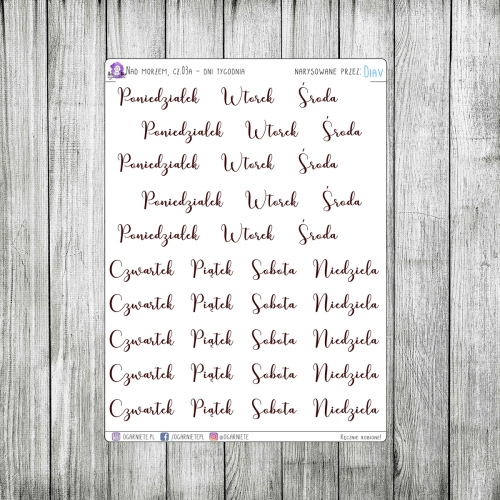 Nad morzem, cz.03a – dni tygodnia narysowane przez: Diav
Poniedziałek Wtorek Środa
Poniedziałek Wtorek Środa
Poniedziałek Wtorek Środa
Poniedziałek Wtorek Środa
Poniedziałek Wtorek Środa
Czwartek Piątek Sobota Niedziela
Czwartek Piątek Sobota Niedziela
Czwartek Piątek Sobota Niedziela
Czwartek Piątek Sobota Niedziela
Czwartek Piątek Sobota Niedziela
ogarniete.pl /ogarnietepl @ogarniete Ręcznie robione!